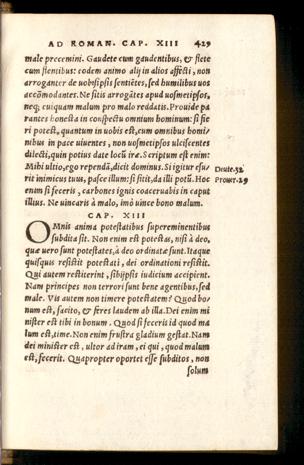 AD ROMAN. CAP. XIII 429
male precemini. Gaudete cum gaudentibus, & flete
cum flentibus: eodem animo alij in alios affecti, non
arroganter de uobisipsis sentiētes, sed humilibus uos
accōmodantes. Ne sitis arrogātes apud uosmetipsos,
neq; cuiquam malum pro malo reddatis. Prouide pa
rantes honesta in conspectu omnium hominum: si fie
ri potest, quantum in uobis est, cum omnibus homi⸗
nibus in pace uiuentes, non uosmetipsos ulciscentes
dilecti, quin potius date locū iræ. Scriptum est enim:
Mihi ultio, ego rependā, dicit dominus. Si igitur esu⸗ Deute.32
rit inimicus tuus, pasce illum: si sitit, da illi potū. Hoc Prouer.29
enim si feceris, carbones ignis coaceruabis in caput
illius. Ne uincaris à malo, imò uince bono malum.
CAP. XIII
OMnis anima potestatibus supereminentibus
subdita sit. Non enim est potestas, nisi à deo,
quæ uero sunt potestates, à deo ordinatæ sunt. Itaque
quisquis resistit potestati, dei ordinationi resistit.
Qui autem restiterint, sibijpsis iudicium accipient.
Nam principes non terrori sunt bene agentibus, sed
male. Vis autem non timere potestatem? Quod bo⸗
num est, facito, & feres laudem ab illa. Dei enim mi
nister est tibi in bonum. Quod si feceris id quod ma
lum est, time. Non enim frustra gladium gestat. Nam
dei minister est, ultor ad iram, ei qui, quod malum
est, fecerit. Quapropter oportet esse subditos, non
solum